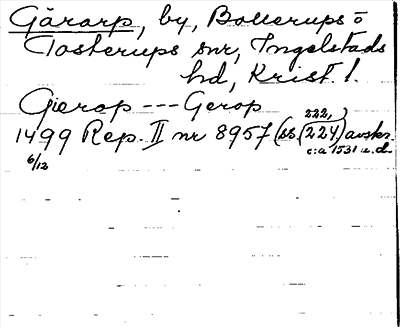 Gärarp, by, Bollerups o
Tosterups snr, Ingelstads
hd, Krist. l.
Gærop --- Gerop
222,
1499 Rep. II nr 8957 (ss. (224) avskr.
6/12 c:a 1531 u.d.